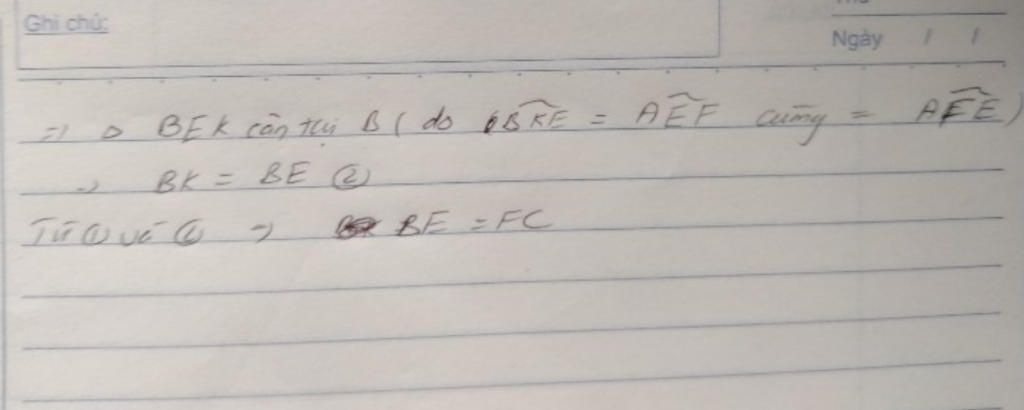 Ghi chú:
Ngày / /
=> Δ BEK cân tại B ( do \widehat{BKE} = \widehat{AEF} cùng = \widehat{AFE} )
-> BK = BE ②
Từ ① và ② => BE = FC